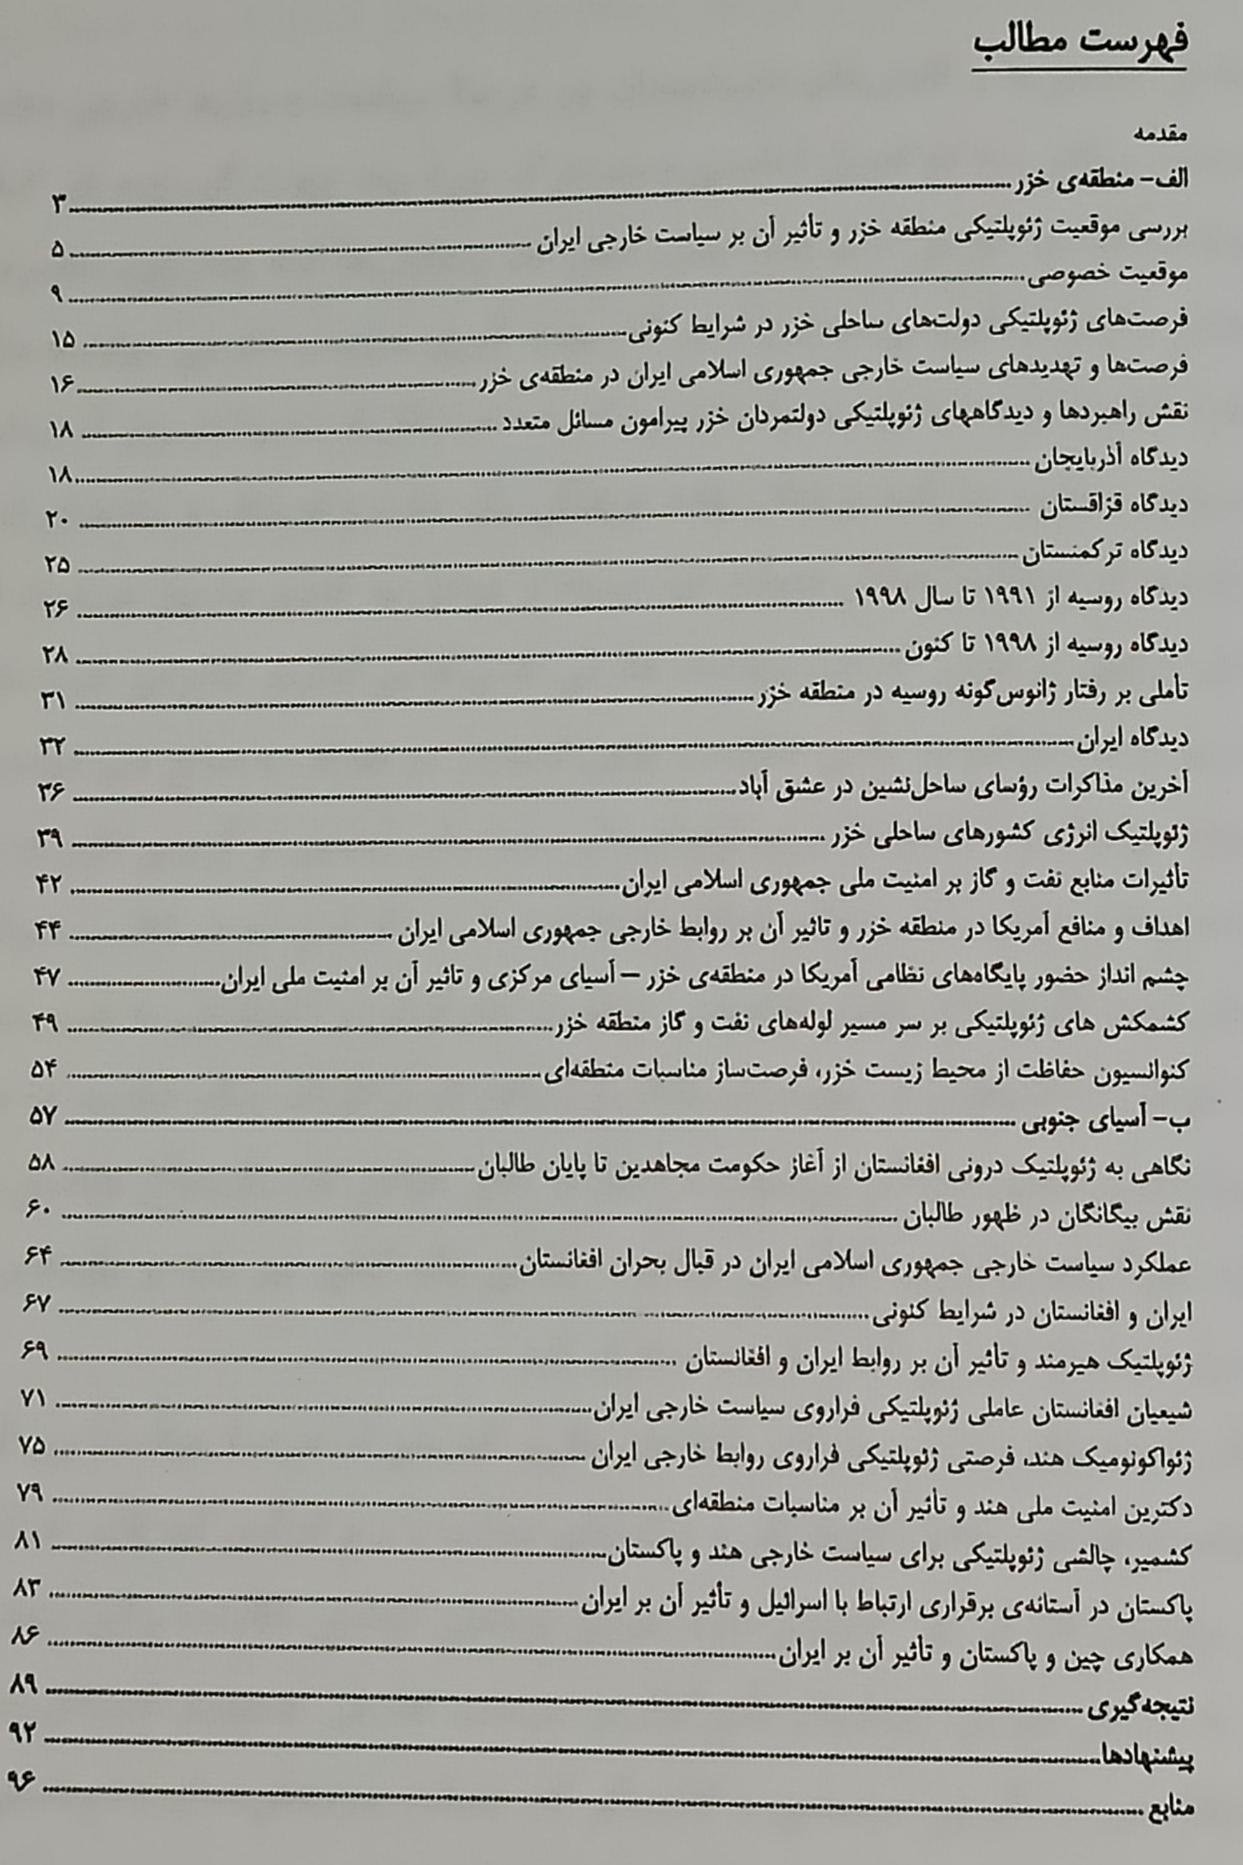 فهرست مطالب
مقدمه
الف- منطقه‌ی خزر ۳
بررسی موقعیت ژئوپلتیکی منطقه خزر و تأثیر آن بر سیاست خارجی ایران ۵
موقعیت خصوصی ۹
فرصت‌های ژئوپلتیکی دولت‌های ساحلی خزر در شرایط کنونی ۱۵
فرصت‌ها و تهدیدهای سیاست خارجی جمهوری اسلامی ایران در منطقه‌ی خزر ۱۶
نقش راهبردها و دیدگاههای ژئوپلتیکی دولتمردان خزر پیرامون مسائل متعدد ۱۸
دیدگاه آذربایجان ۱۸
دیدگاه قزاقستان ۲۰
دیدگاه ترکمنستان ۲۵
دیدگاه روسیه از ۱۹۹۱ تا سال ۱۹۹۸ ۲۶
دیدگاه روسیه از ۱۹۹۸ تا کنون ۲۸
تأملی بر رفتار ژانوس‌گونه روسیه در منطقه خزر ۳۱
دیدگاه ایران ۳۲
آخرین مذاکرات رؤسای ساحل‌نشین در عشق آباد ۳۶
ژئوپلتیک انرژی کشورهای ساحلی خزر ۳۹
تأثیرات منابع نفت و گاز بر امنیت ملی جمهوری اسلامی ایران ۴۲
اهداف و منافع آمریکا در منطقه خزر و تاثیر آن بر روابط خارجی جمهوری اسلامی ایران ۴۴
چشم انداز حضور پایگاه‌های نظامی آمریکا در منطقه‌ی خزر – آسیای مرکزی و تاثیر آن بر امنیت ملی ایران ۴۷
کشمکش های ژئوپلتیکی بر سر مسیر لوله‌های نفت و گاز منطقه خزر ۴۹
کنوانسیون حفاظت از محیط زیست خزر، فرصت‌ساز مناسبات منطقه‌ای ۵۴
ب- آسیای جنوبی ۵۷
نگاهی به ژئوپلتیک درونی افغانستان از آغاز حکومت مجاهدین تا پایان طالبان ۵۸
نقش بیگانگان در ظهور طالبان ۶۰
عملکرد سیاست خارجی جمهوری اسلامی ایران در قبال بحران افغانستان ۶۴
ایران و افغانستان در شرایط کنونی ۶۷
ژئوپلتیک هیرمند و تأثیر آن بر روابط ایران و افغانستان ۶۹
شیعیان افغانستان عاملی ژئوپلتیکی فراروی سیاست خارجی ایران ۷۱
ژئواکونومیک هند، فرصتی ژئوپلتیکی فراروی روابط خارجی ایران ۷۵
دکترین امنیت ملی هند و تأثیر آن بر مناسبات منطقه‌ای ۷۹
کشمیر، چالشی ژئوپلتیکی برای سیاست خارجی هند و پاکستان ۸۱
پاکستان در آستانه‌ی برقراری ارتباط با اسرائیل و تأثیر آن بر ایران ۸۳
همکاری چین و پاکستان و تأثیر آن بر ایران ۸۶
نتیجه‌گیری ۸۹
پیشنهادها ۹۲
منابع ۹۶